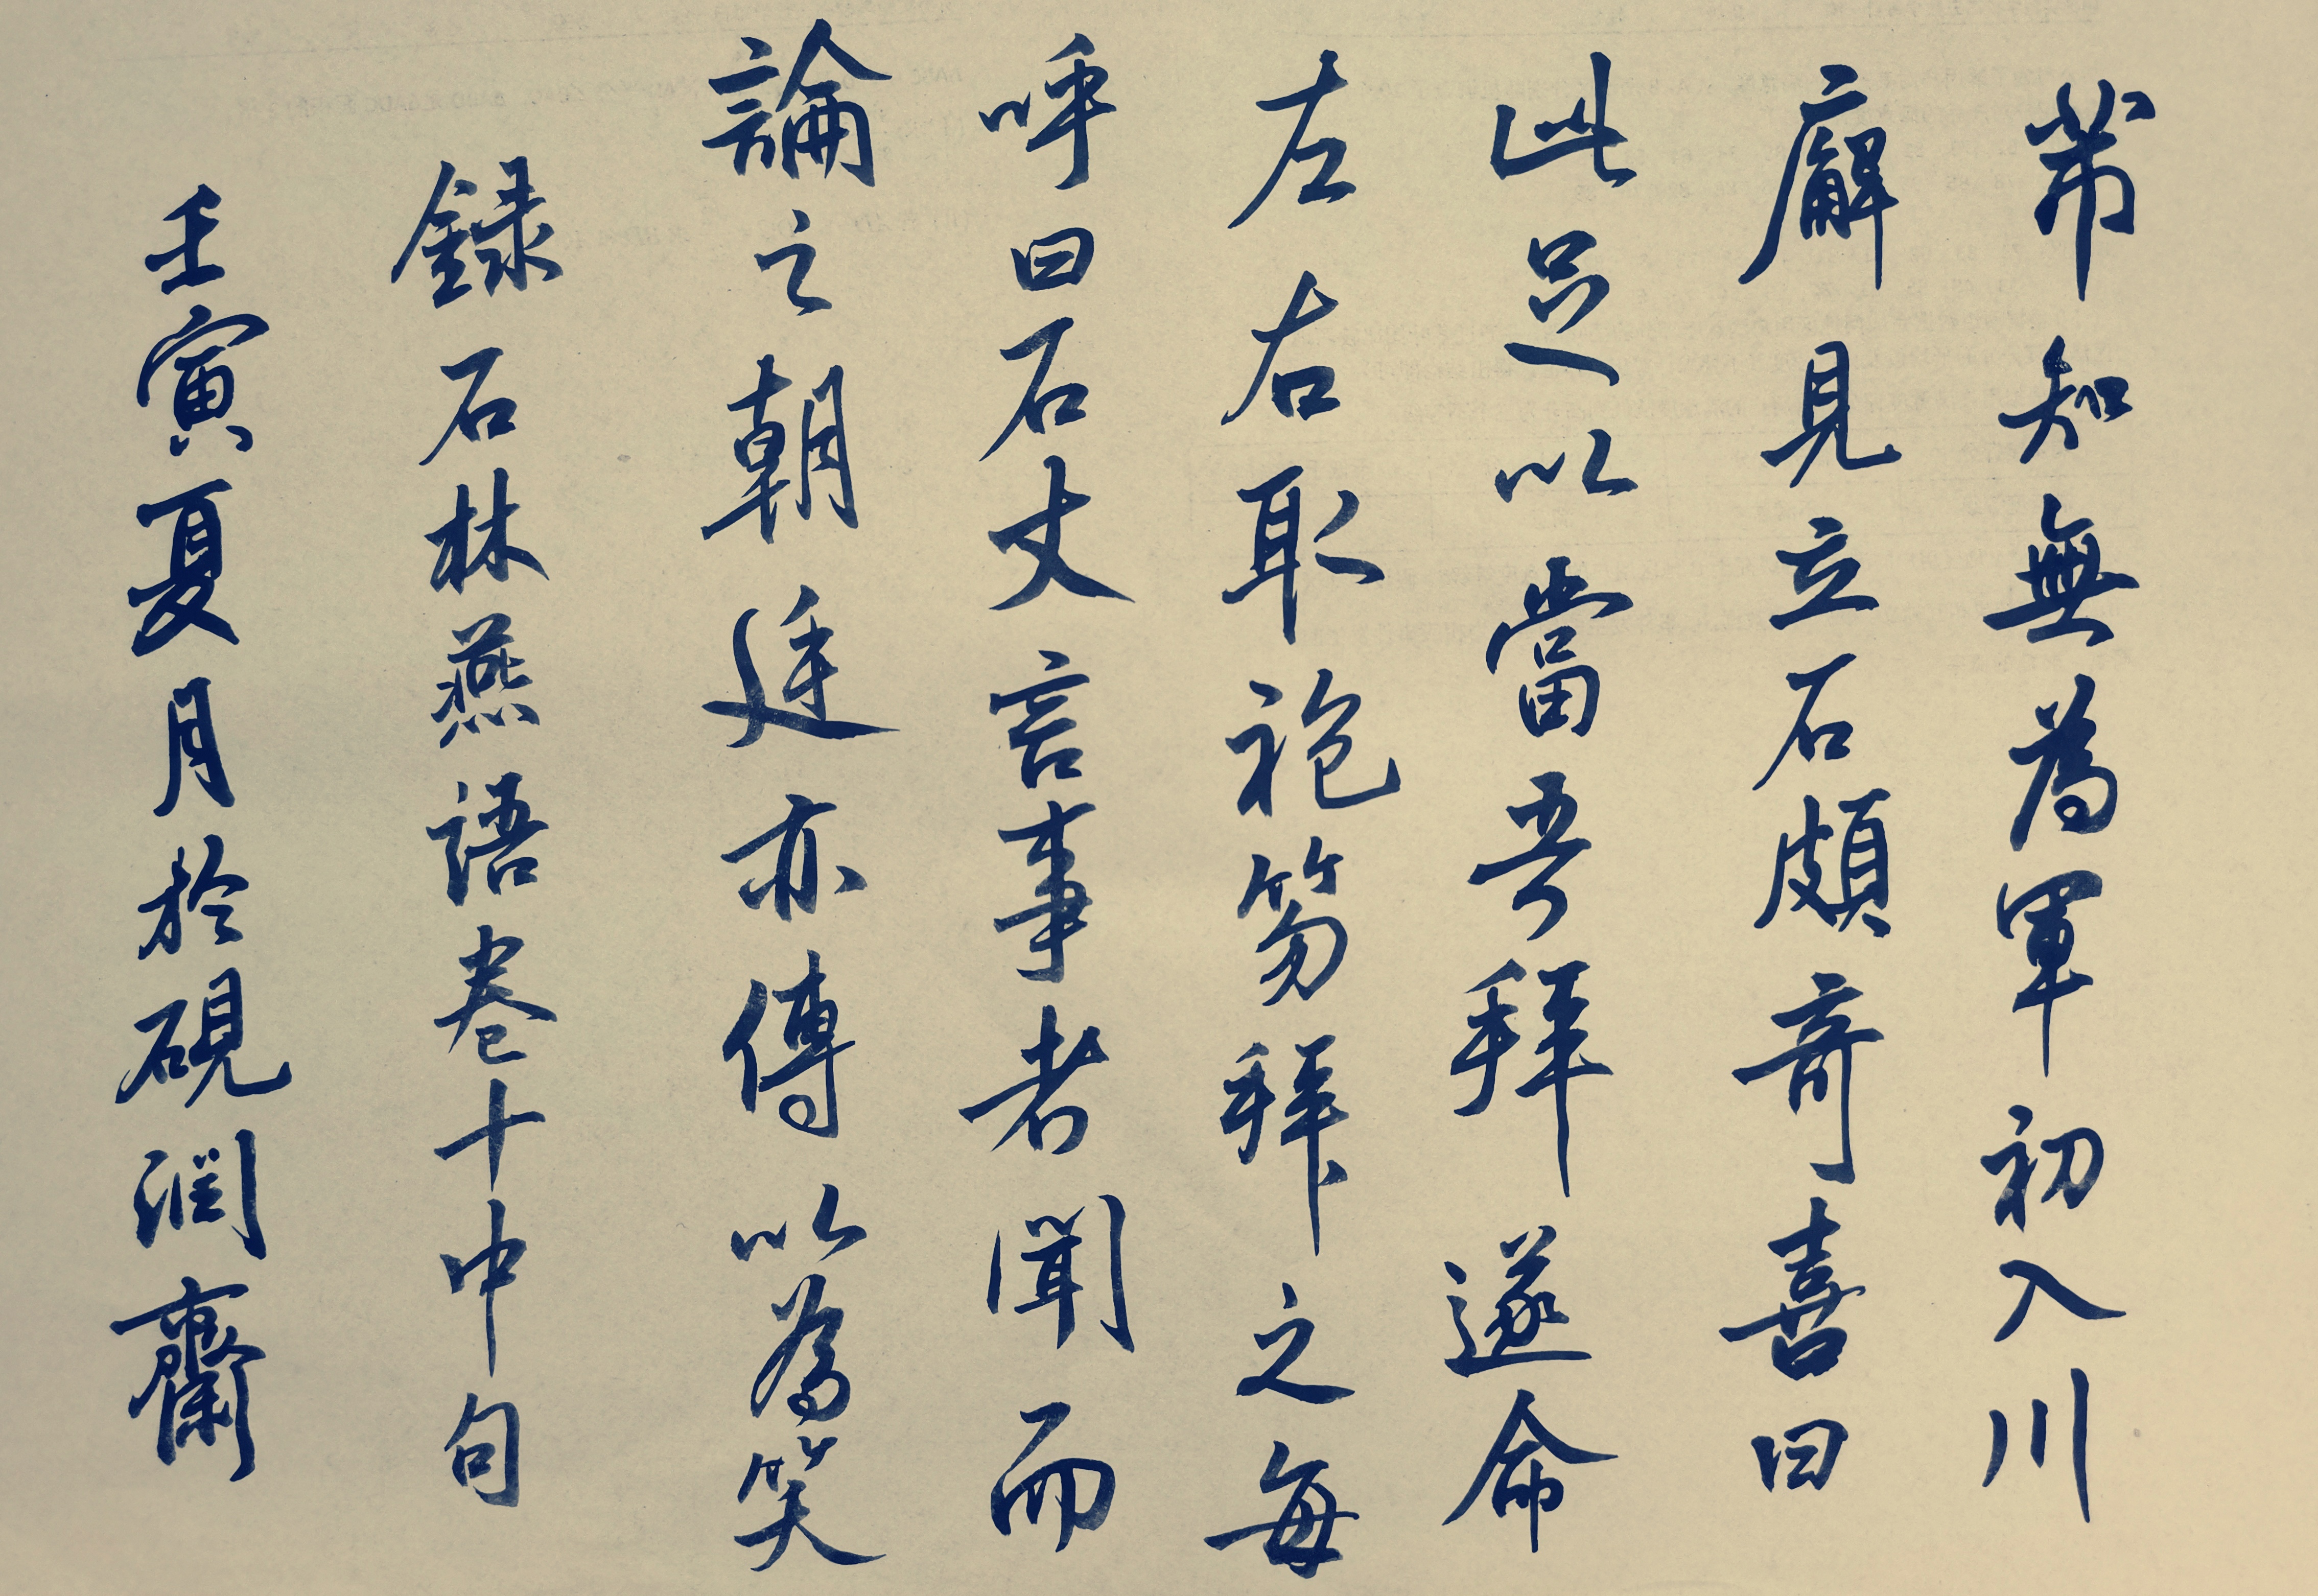 芾知無為軍初入川
廨見立石頗奇喜曰
此足以當吾拜遂命
左右取袍笏拜之每
呼曰石丈言事者聞而
論之朝廷亦傳以為笑
録石林燕語卷十中句
壬寅夏月於硯潤齋